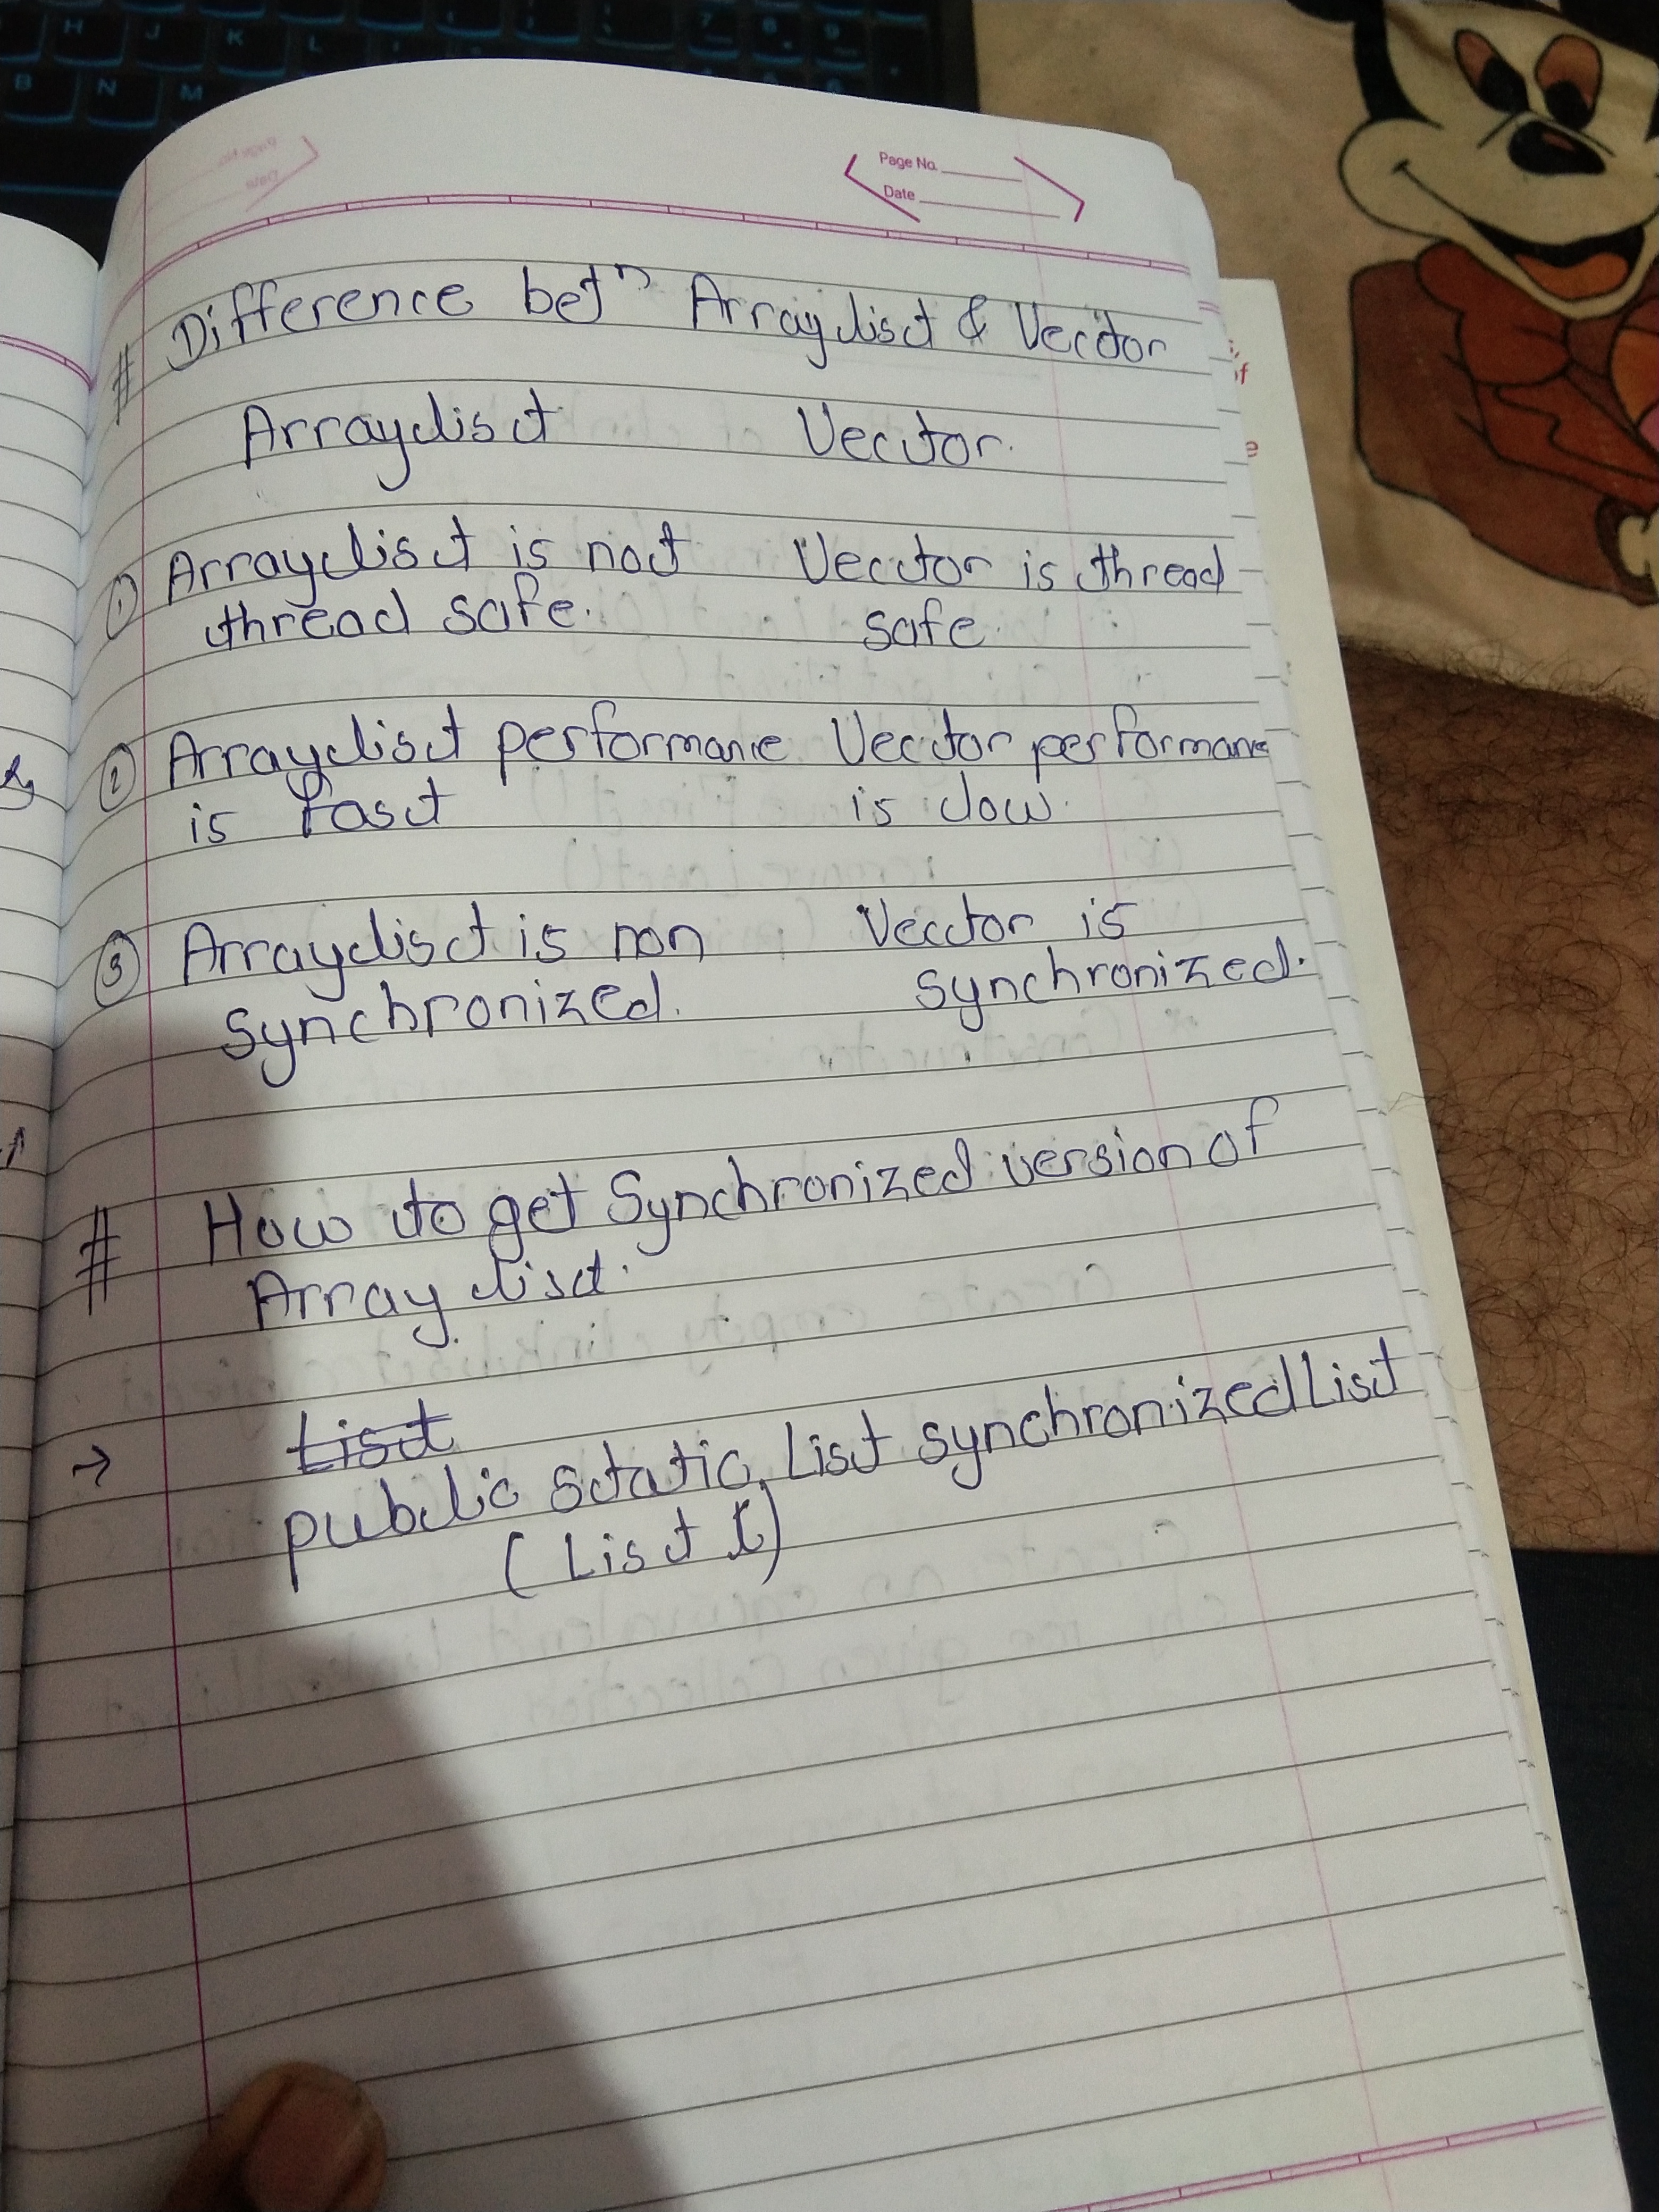 Page No.
Date
# Difference betn Arraylist & Vector
Arraylist Vector.
① Arraylist is not Vector is thread
thread safe. safe.
② Arraylist performance Vector performance
is fast is low.
③ Arraylist is non Vector is
synchronized. synchronized.
# How to get Synchronized version of
Array list.
→ List
public static List synchronizedList
(List l)